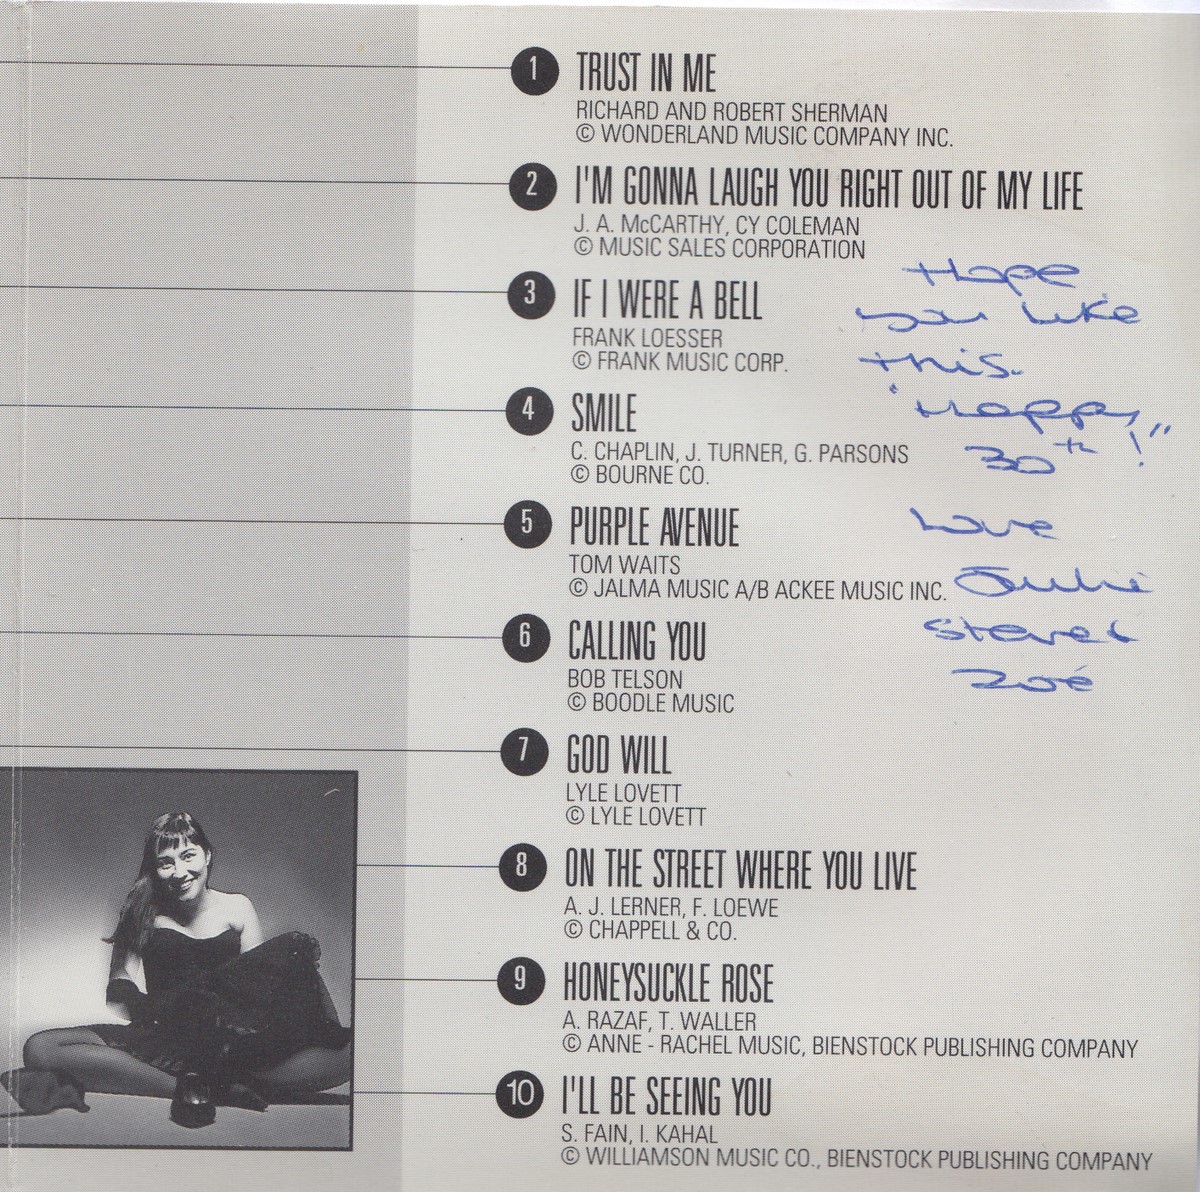 1 TRUST IN ME
RICHARD AND ROBERT SHERMAN
© WONDERLAND MUSIC COMPANY INC.
2 I'M GONNA LAUGH YOU RIGHT OUT OF MY LIFE
J. A. McCARTHY, CY COLEMAN
© MUSIC SALES CORPORATION
3 IF I WERE A BELL
FRANK LOESSER
© FRANK MUSIC CORP.
4 SMILE
C. CHAPLIN, J. TURNER, G. PARSONS
© BOURNE CO.
5 PURPLE AVENUE
TOM WAITS
© JALMA MUSIC A/B ACKEE MUSIC INC.
6 CALLING YOU
BOB TELSON
© BOODLE MUSIC
7 GOD WILL
LYLE LOVETT
© LYLE LOVETT
8 ON THE STREET WHERE YOU LIVE
A. J. LERNER, F. LOEWE
© CHAPPELL & CO.
9 HONEYSUCKLE ROSE
A. RAZAF, T. WALLER
© ANNE - RACHEL MUSIC, BIENSTOCK PUBLISHING COMPANY
10 I'LL BE SEEING YOU
S. FAIN, I. KAHAL
© WILLIAMSON MUSIC CO., BIENSTOCK PUBLISHING COMPANY
Hope
you like
this.
"Happy
30th!"
Love
Julie
Steve &
Zoé